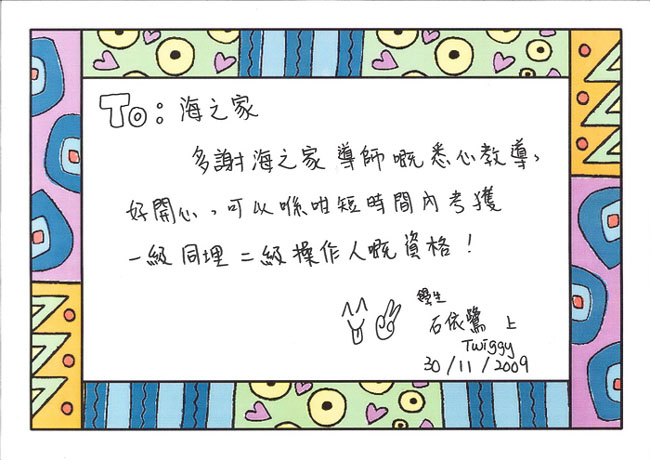 To: 海之家
多謝海之家導師嘅悉心教導,
好開心,可以喺咁短時間內考獲
一級同埋二級操作人嘅資格!
學生
石依鷺 上
Twiggy
30/11/2009